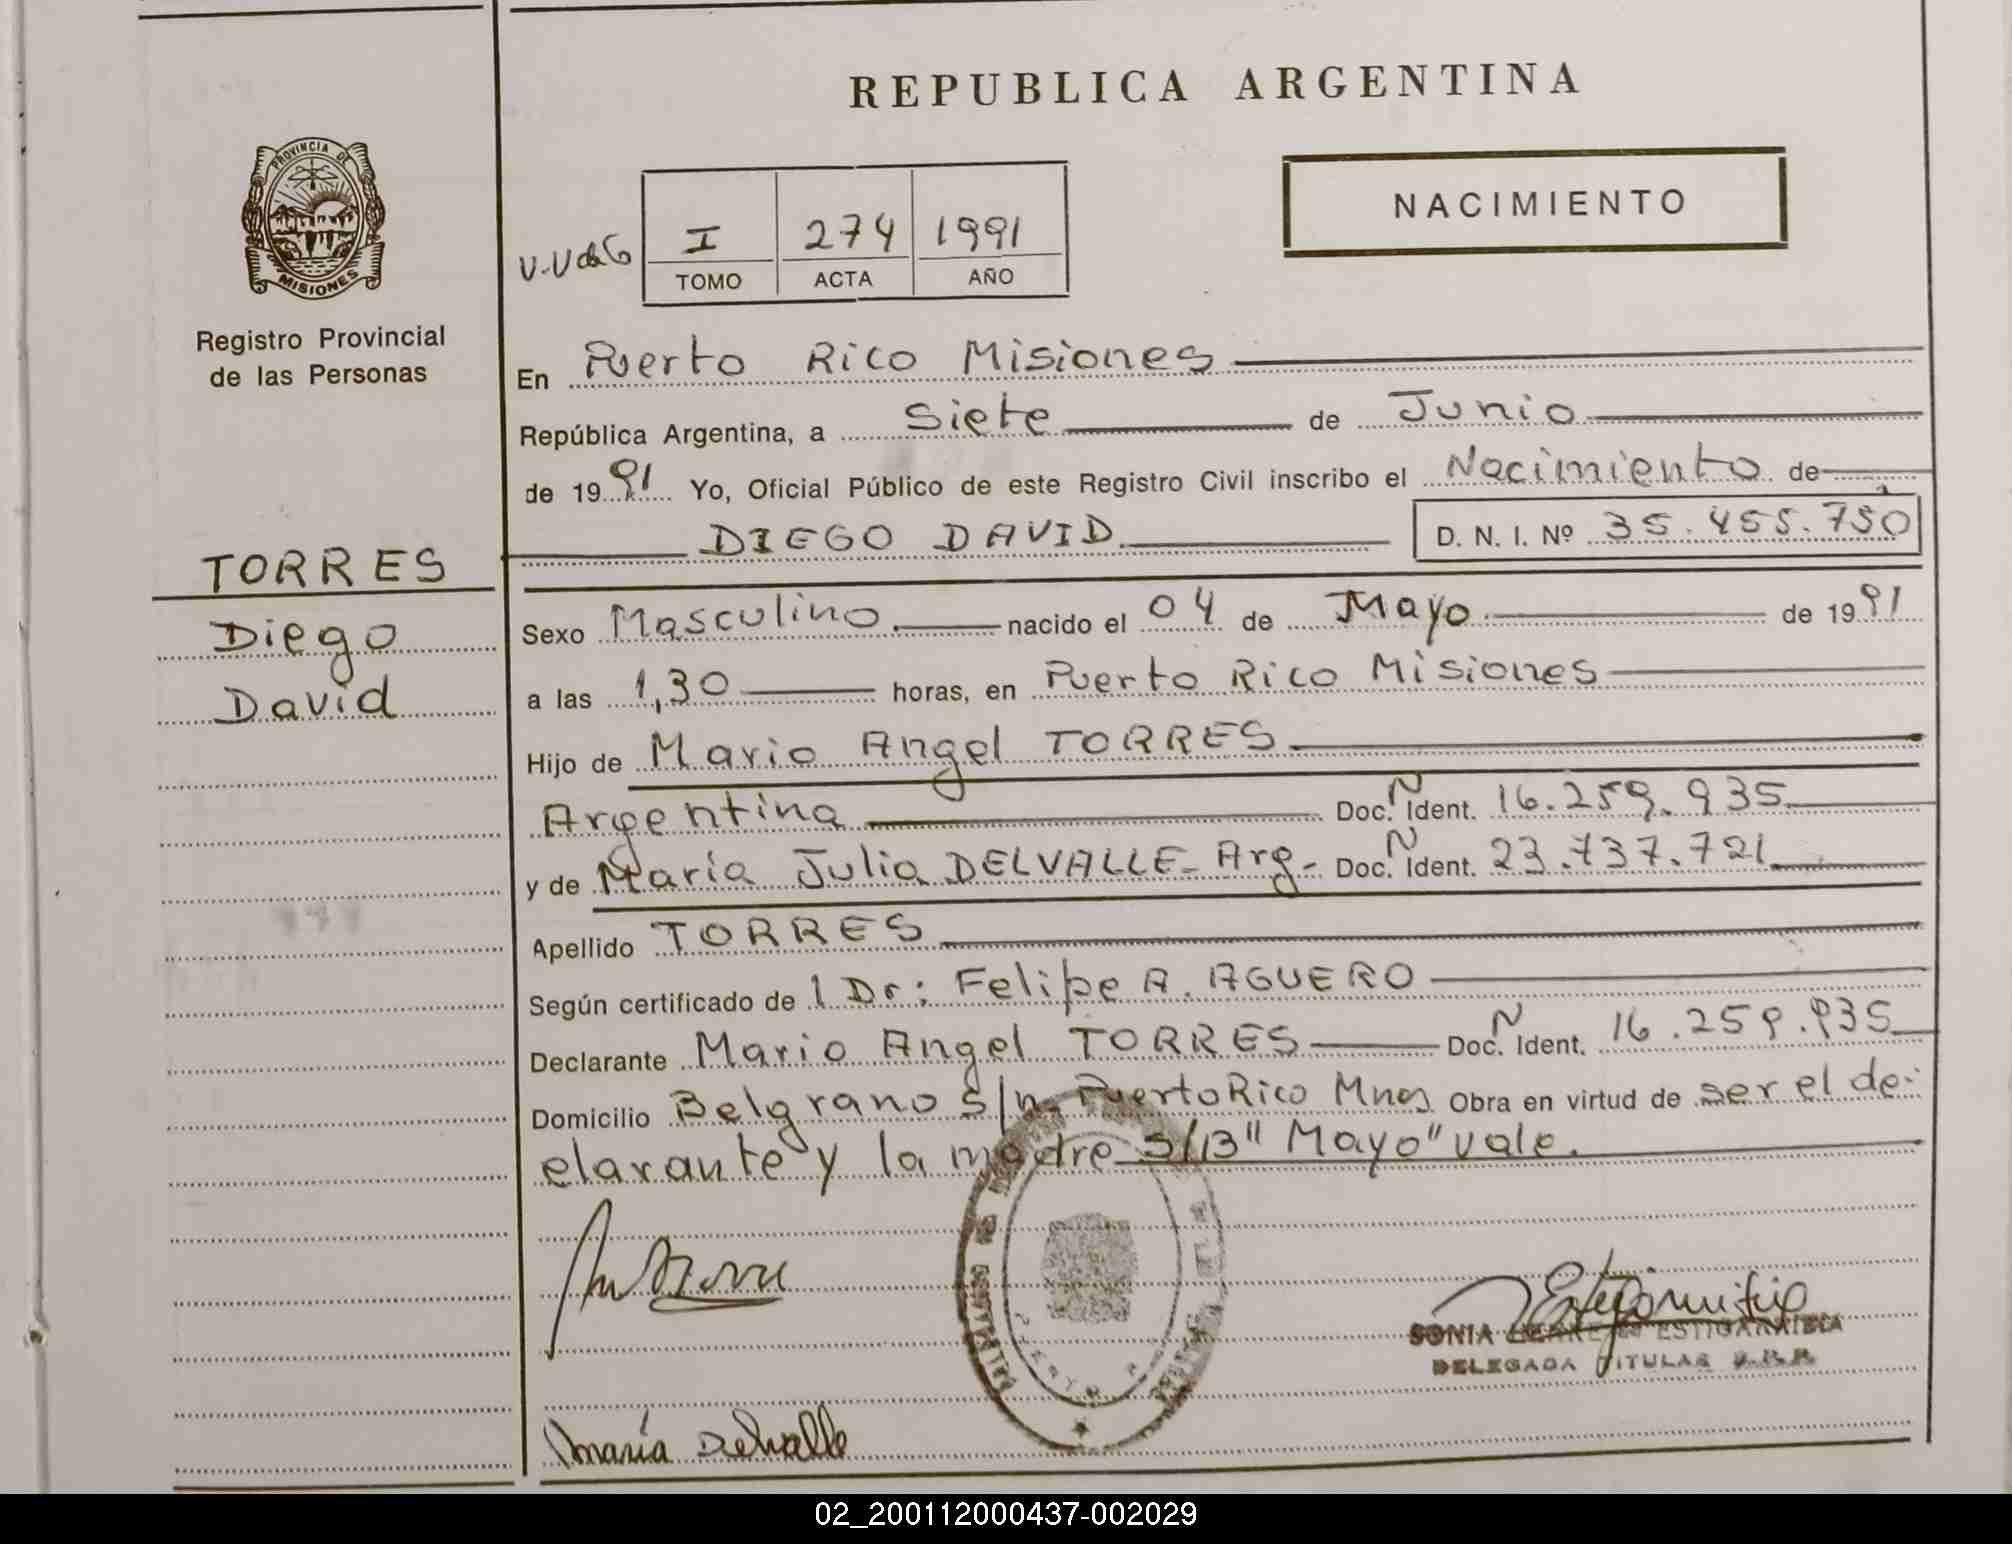 REPUBLICA ARGENTINA
PROVINCIA DE
MISIONES
NACIMIENTO
I 274 1991
TOMO ACTA AÑO
Registro Provincial
de las Personas
En Puerto Rico Misiones
República Argentina, a Siete de Junio
de 1991 Yo, Oficial Público de este Registro Civil inscribo el Nacimiento de
DIEGO DAVID D. N. I. Nº 35.455.750
TORRES
Diego
David
Sexo Masculino nacido el 04 de Mayo de 1991
a las 1,30 horas, en Puerto Rico Misiones
Hijo de Mario Angel TORRES
Argentina Doc. N Ident. 16.259.935
y de Maria Julia DELVALLE - Arg- Doc. N Ident. 23.737.721
Apellido TORRES
Según certificado de l Dr: Felipe A. AGUERO
Declarante Mario Angel TORRES Doc. N Ident. 16.259.935
Domicilio Belgrano S/n Puerto Rico Mnes Obra en virtud de ser el de-
clarante y la madre S/B "Mayo" vale.
SONIA ESTIGARRIBIA
DELEGADA TITULAR
María Delvalle
02_200112000437-002029